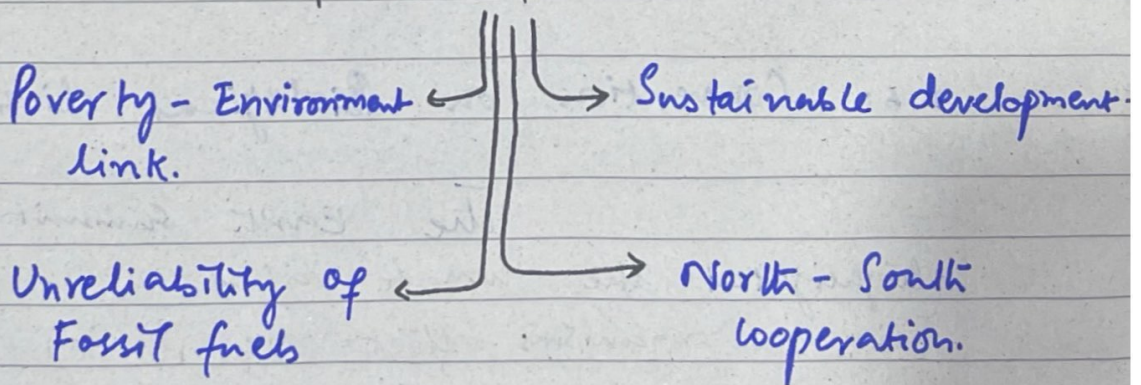 Poverty - Environment
link.
Sustainable development.
Unreliability of
Fossil fuels
North - South
cooperation.